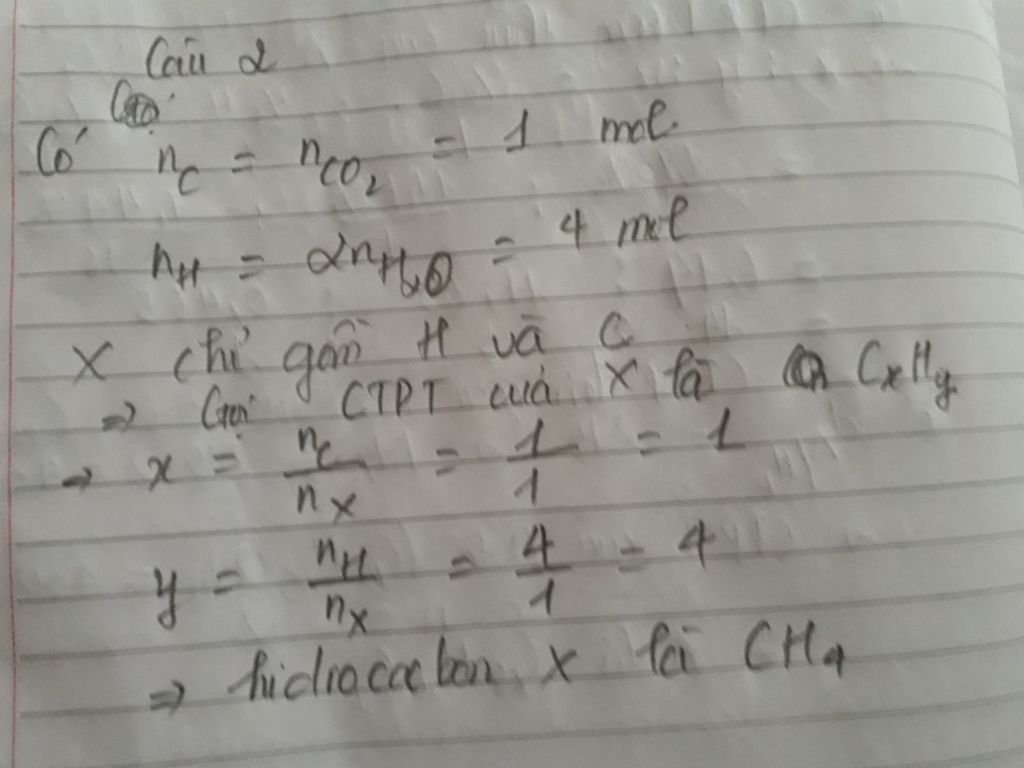 Câu 2
Có n_C = n_CO₂ = 1 mol
n_H = 2n_H₂O = 4 mol
X chỉ gồm H và C
⇒ Gọi CTPT của X là C_xH_y
→ x = n_C/n_X = 1/1 = 1
y = n_H/n_X = 4/1 = 4
⇒ hidrocacbon X là CH₄